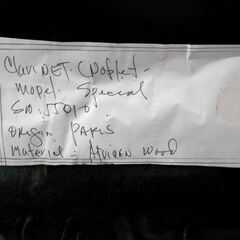 Clarinet: Cnoflet -
Model Special
SN: JJ010.
Origin PARIS.
Material = African wood